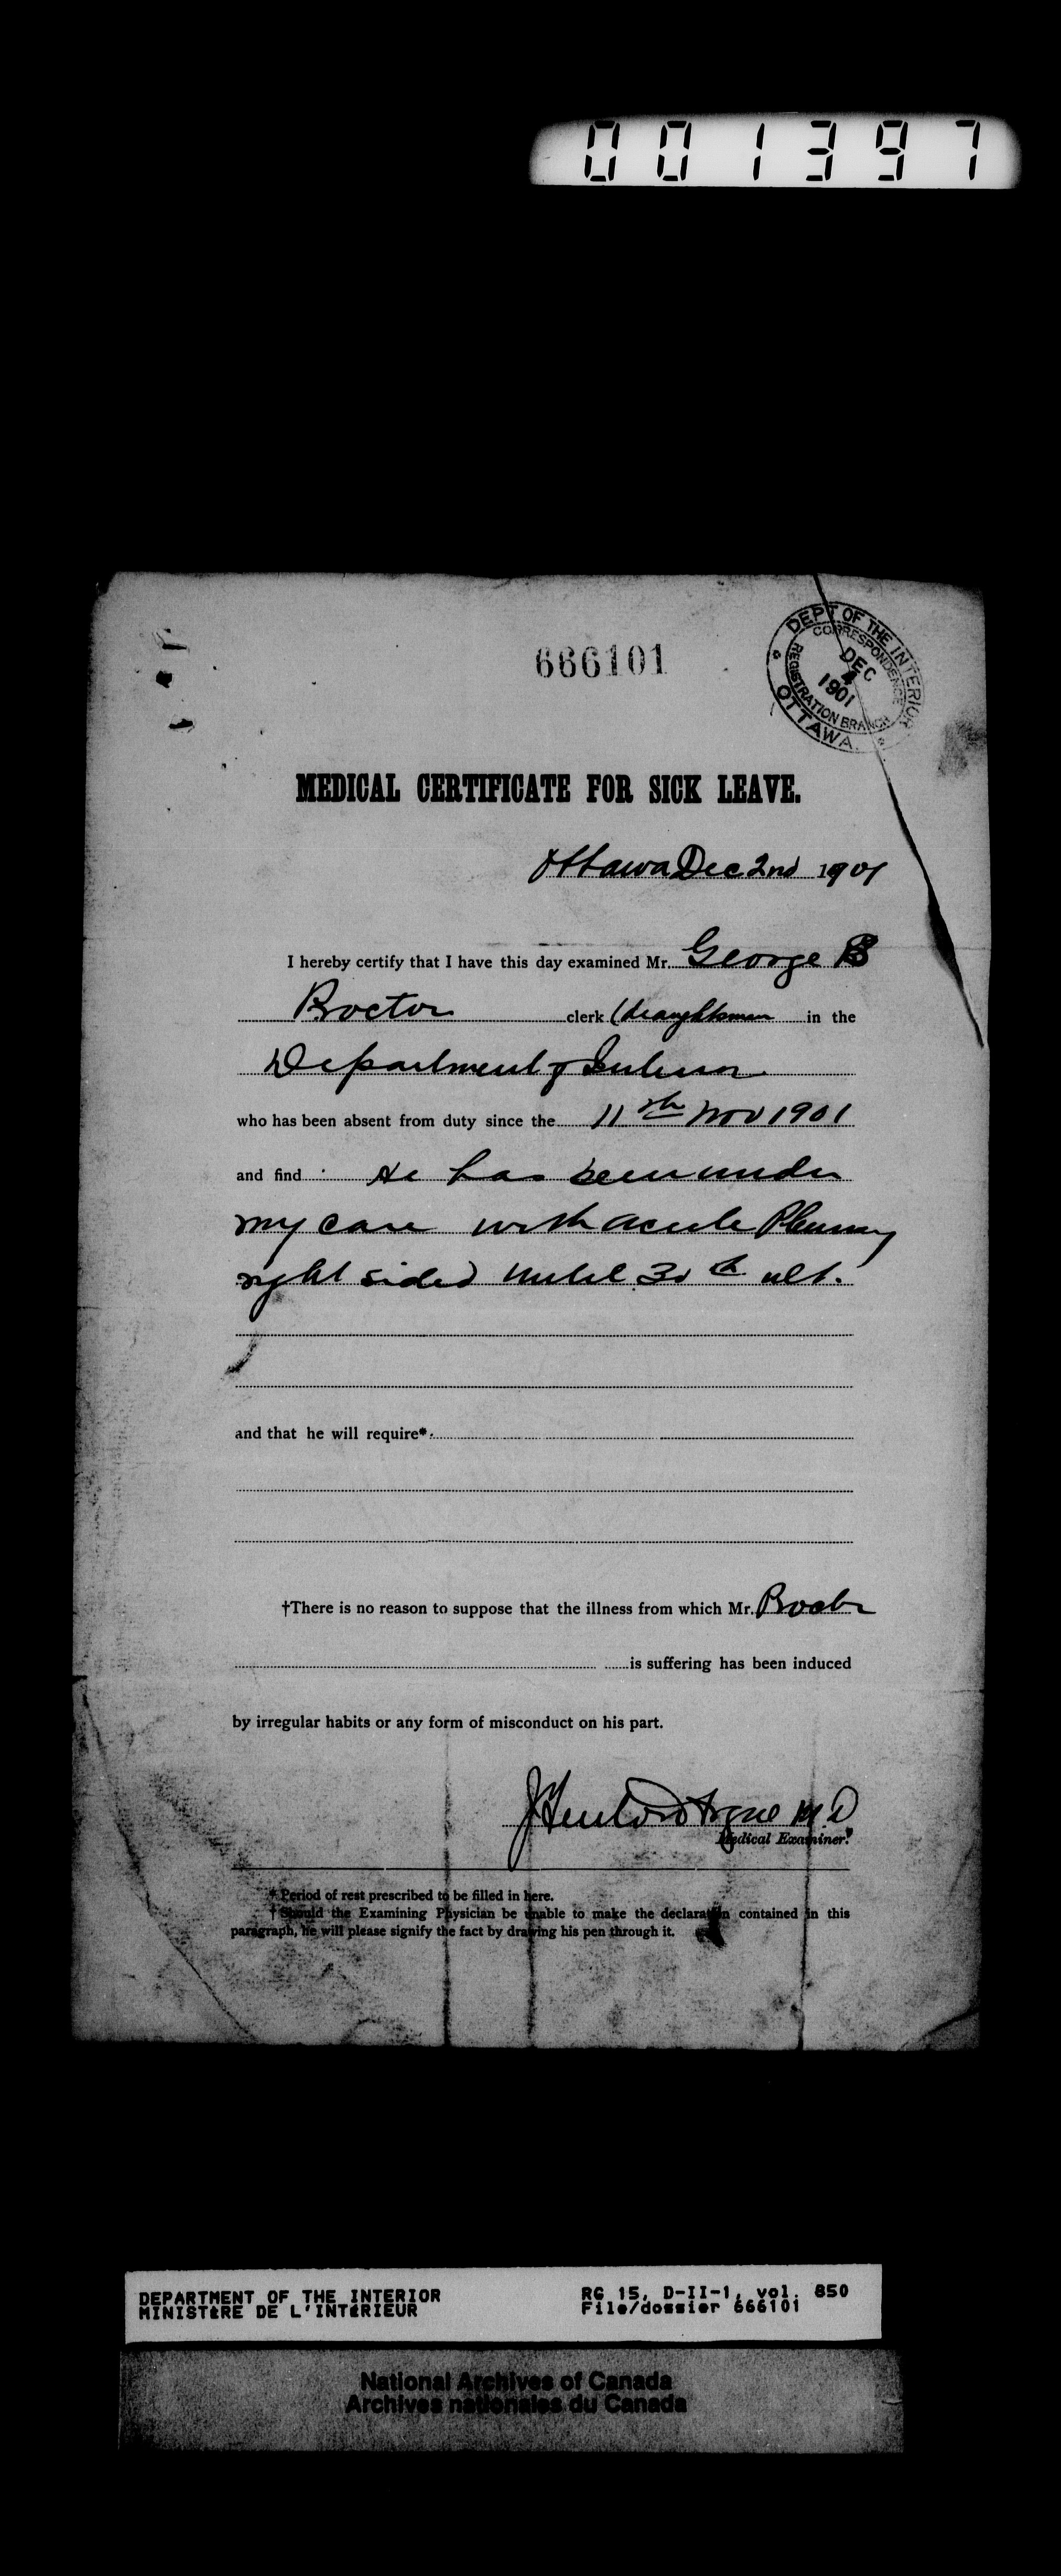 001397
666101
DEPT OF THE INTERIOR
CORRESPONDENCE
DEC
4
1901
REGISTRATION BRANCH
OTTAWA
MEDICAL CERTIFICATE FOR SICK LEAVE.
Ottawa Dec 2nd 1901
I hereby certify that I have this day examined Mr. George B
Proctor clerk (draughtsman in the
Department of Interior
who has been absent from duty since the 11th Nov 1901
and find He has been under
my care with acute Pleurisy
right sided until 30th ult.
and that he will require*
†There is no reason to suppose that the illness from which Mr. Proctor
is suffering has been induced
by irregular habits or any form of misconduct on his part.
M.D
Medical Examiner.
* Period of rest prescribed to be filled in here.
† Should the Examining Physician be unable to make the declaration contained in this
paragraph, he will please signify the fact by drawing his pen through it.
DEPARTMENT OF THE INTERIOR
MINISTÈRE DE L'INTÉRIEUR
RG 15, D-II-1, vol. 850
File/dossier 666101
National Archives of Canada
Archives nationales du Canada